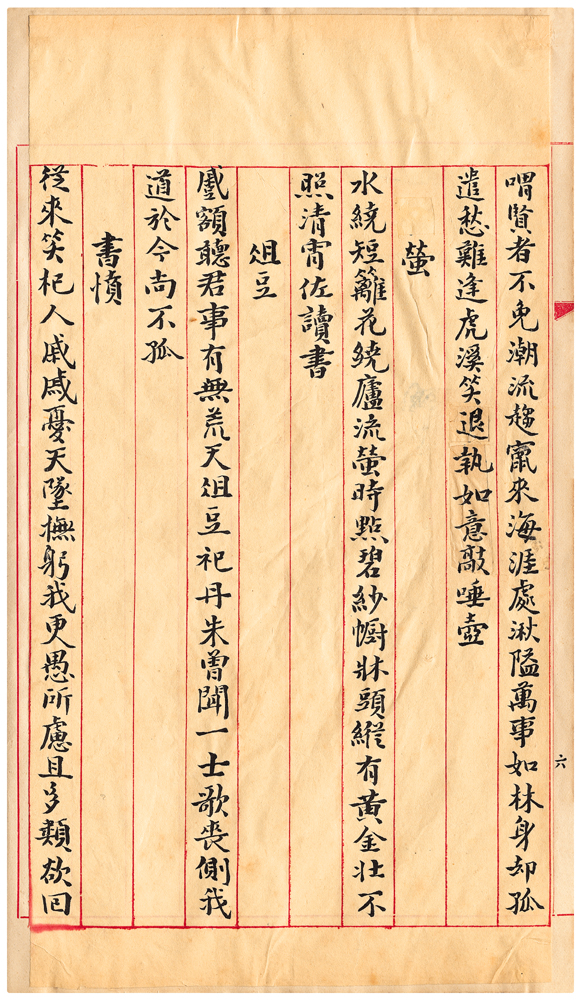 喟賢者不免潮流趨竄來海涯處湫隘萬事如林身却孤
遣愁難逢虎溪笑退執如意敲唾壺
螢
水繞短籬花繞廬流螢時點碧紗幮牀頭縱有黃金壯不
照清宵佐讀書
俎豆
蹙額聽君事有無荒天俎豆祀丹朱曾聞一士歌喪側我
道於今尚不孤
書憤
從來笑杞人戚戚憂天墜撫躬我更愚所慮且多類欲回
六